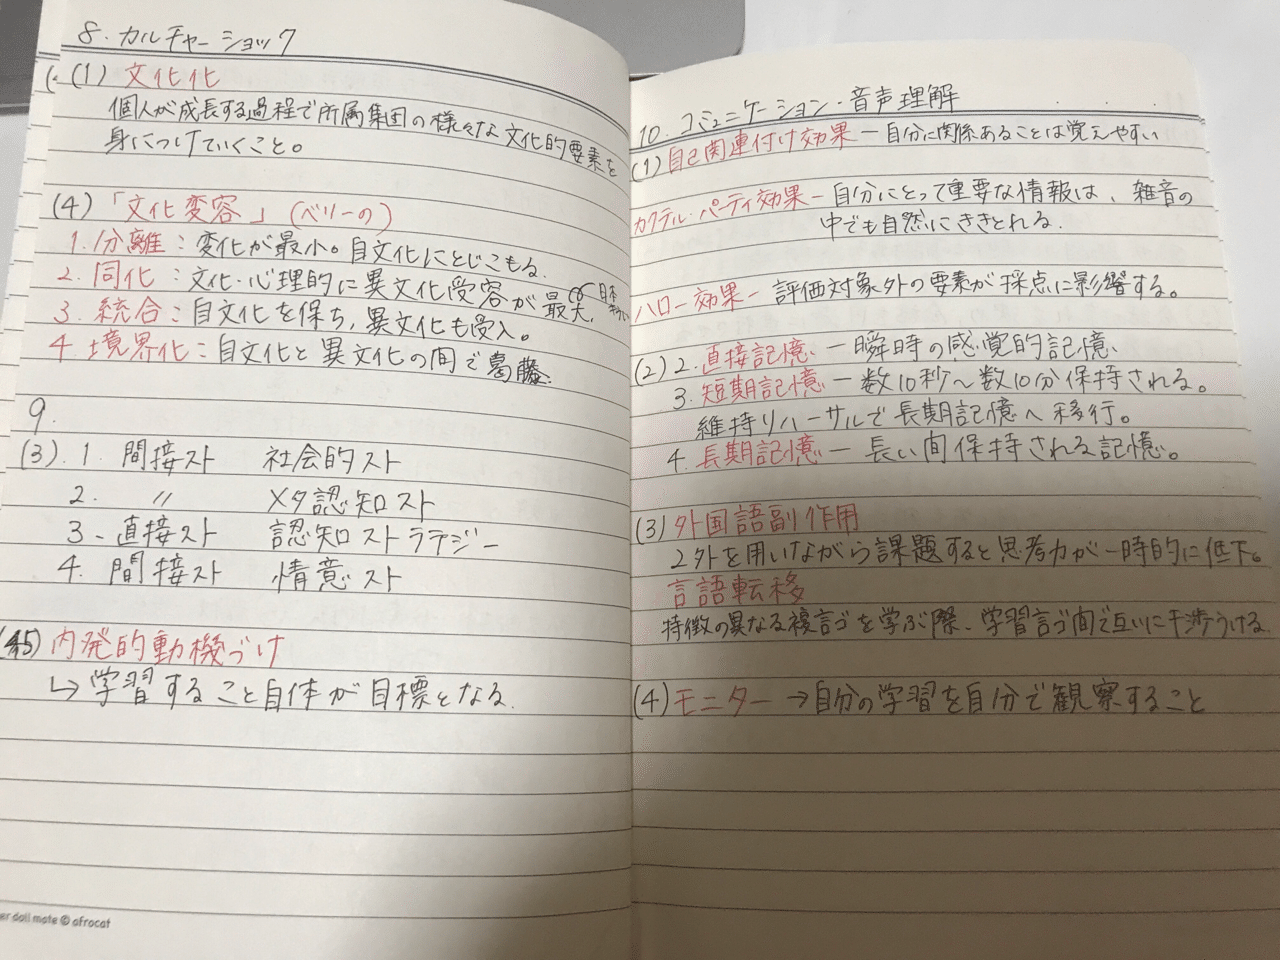 8. カルチャーショック
(1) 文化化
個人が成長する過程で所属集団の様々な文化的要素を
身につけていくこと。
(4) 「文化変容」(ベリーの)
1. 分離：変化が最小。自文化にとじこもる.
2. 同化：文化・心理的に異文化受容が最大.
3. 統合：自文化を保ち, 異文化も受入。
4. 境界化：自文化と異文化の間で葛藤.
9.
(3). 1 間接スト 社会的スト
2. 〃 メタ認知スト
3. 直接スト 認知ストラテジー
4. 間接スト 情意スト
5) 内発的動機づけ
↳ 学習すること自体が目標となる.
er doll mate © afrocat
10. コミュニケーション・音声理解
(1) 自己関連付け効果 ― 自分に関係あることは覚えやすい
カクテル・パーティ効果 ― 自分にとって重要な情報は、雑音の
中でも自然にききとれる.
ハロー効果 ― 評価対象外の要素が採点に影響する。
(2) 2. 直接記憶 ― 瞬時の感覚的記憶
3. 短期記憶 ― 数10秒〜数10分保持される。
維持リハーサルで長期記憶へ移行。
4. 長期記憶 ― 長い間保持される記憶。
(3) 外国語副作用
2外を用いながら課題すると思考力が一時的に低下。
言語転移
特徴の異なる複言ゴを学ぶ際、学習言ゴ間で互いに干渉うける.
(4) モニター → 自分の学習を自分で観察すること